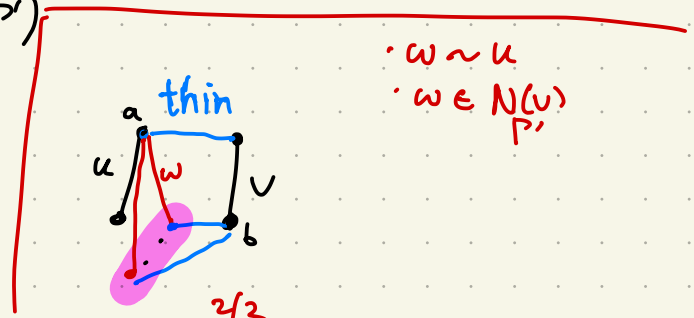 • w ~ u
• w ∈ N(v)
Γ'
thin
a
u
w
v
b
2/3